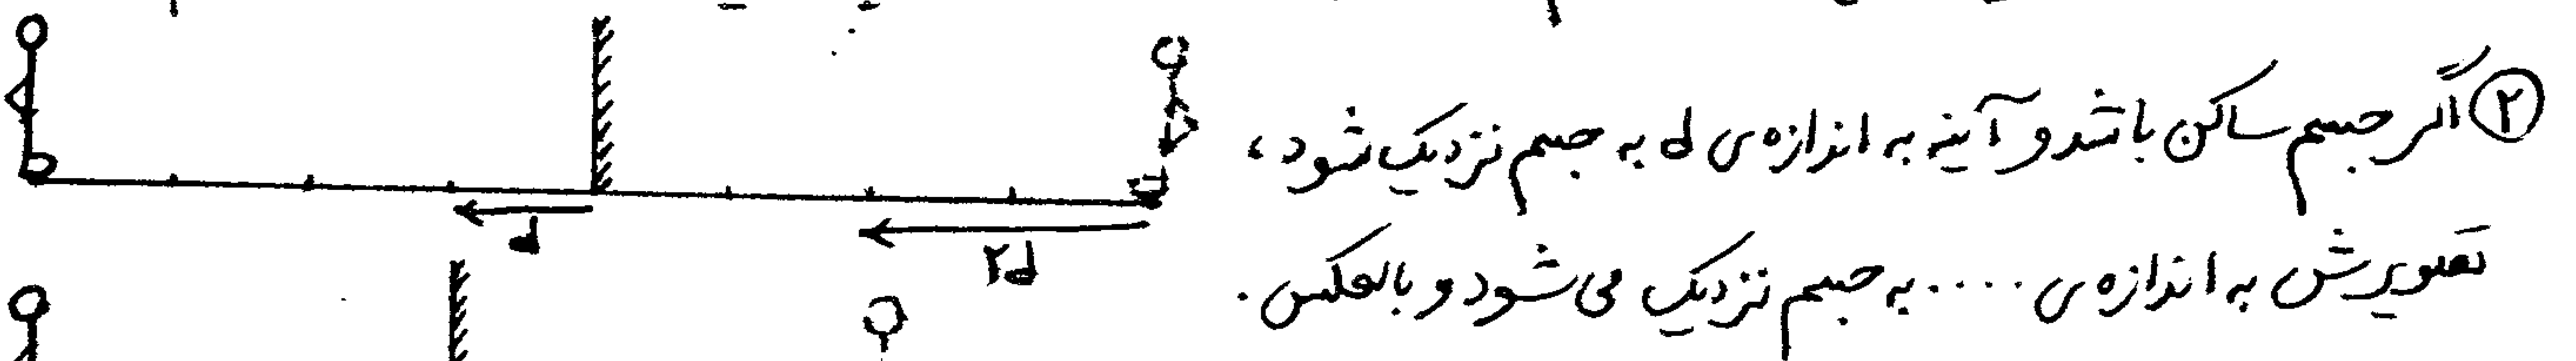 ۲ اگر جسم ساکن باشد و آینه به اندازه‌ی d به جسم نزدیک شود،
تصویرش به اندازه‌ی ..... به جسم نزدیک می‌شود و بالعکس.
d
۲d